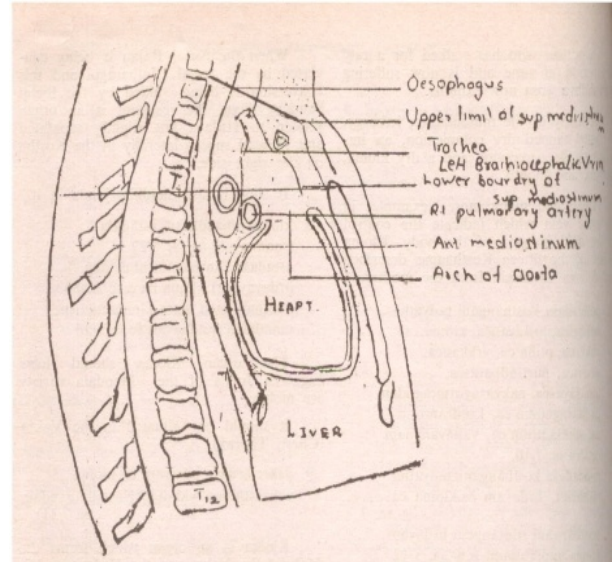 Oesophagus
Upper limit of sup mediastinum
Trochea
Left Brachiocephalic Vein
Lower bourdry of
sup mediastinum
Rt pulmorary artery
Ant mediastinum
Arch of aorta
HEART.
LIVER
T12